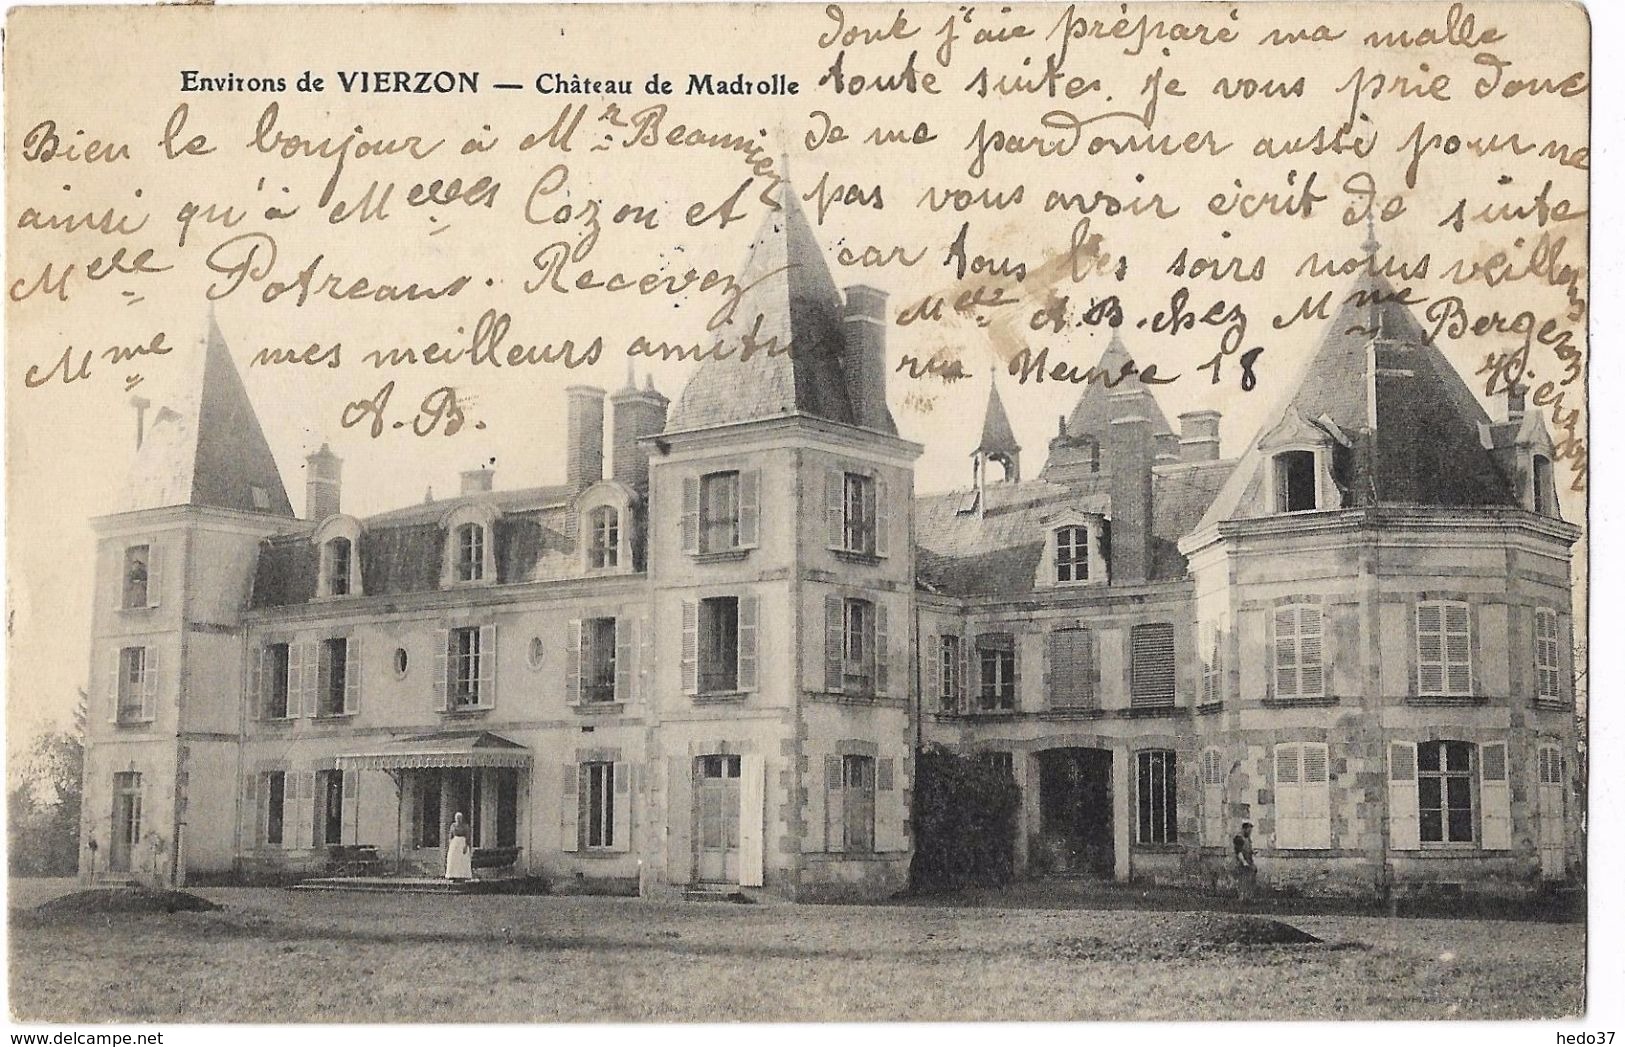 dont j'aie préparé ma malle
toute suite. je vous prie donc
de me pardonner aussi pour ne
pas vous avoir écrit de suite
car tous les soirs nous veillons
Melle A.B. chez Mme Bergeron
rue Neuve 18 Vierzon
Environs de VIERZON — Château de Madrolle
Bien le bonjour à Mr Beaunier
ainsi qu'à Melles Cozon et
Melle Potreaus. Recevez
Mme mes meilleurs amitiés
A.B.
hedo37